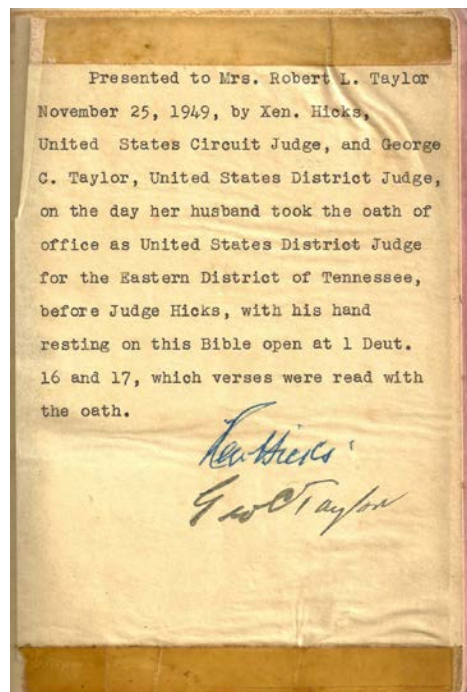 Presented to Mrs. Robert L. Taylor
November 25, 1949, by Xen. Hicks,
United States Circuit Judge, and George
C. Taylor, United States District Judge,
on the day her husband took the oath of
office as United States District Judge
for the Eastern District of Tennessee,
before Judge Hicks, with his hand
resting on this Bible open at 1 Deut.
16 and 17, which verses were read with
the oath.
Xen Hicks
Geo C Taylor